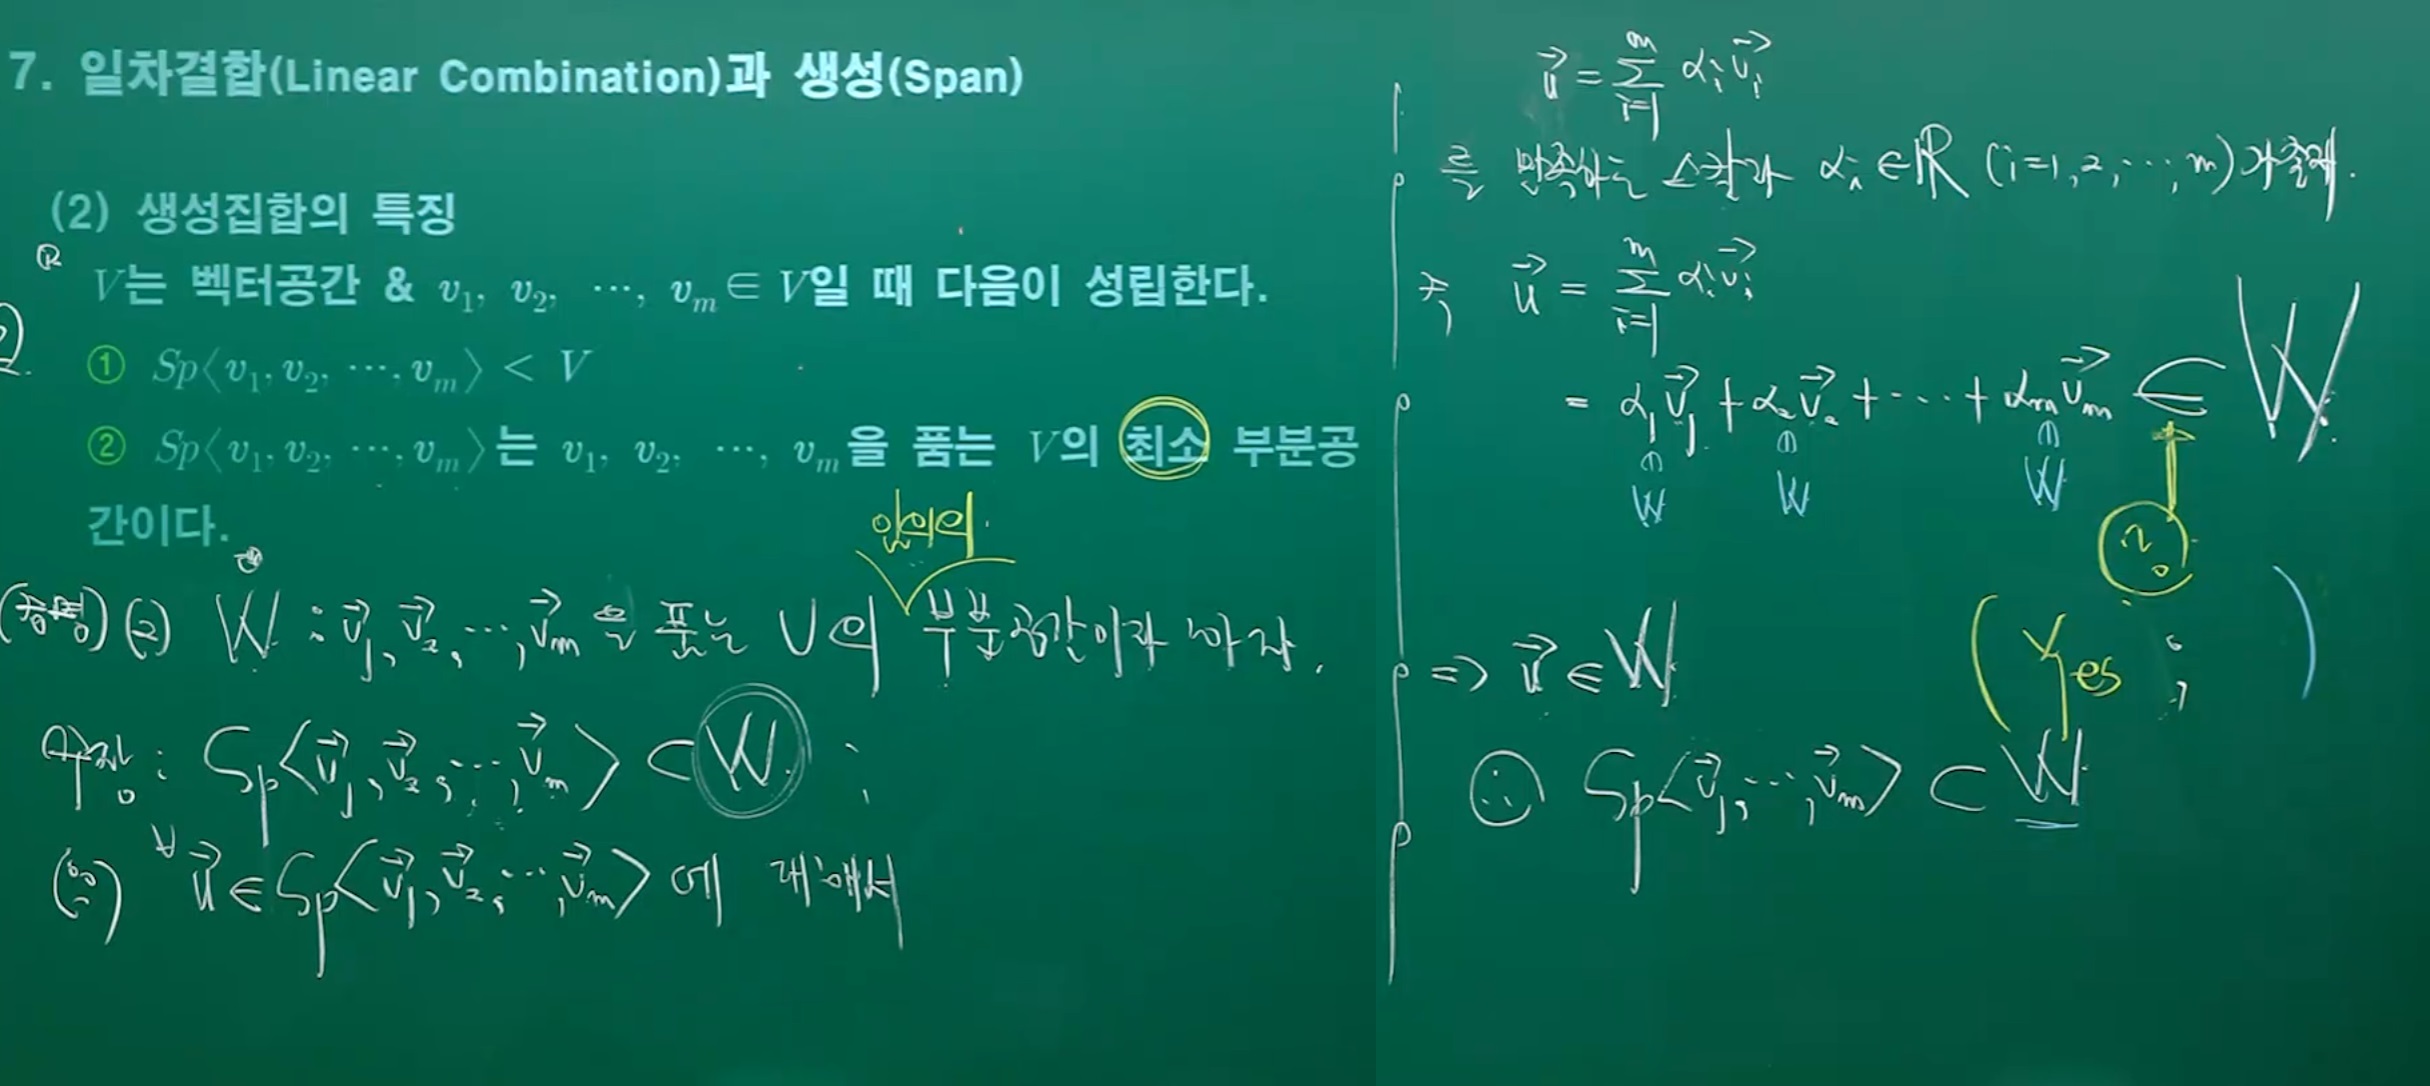 7. 일차결합(Linear Combination)과 생성(Span)
(2) 생성집합의 특징
V는 벡터공간 & v₁, v₂, ⋯, vₘ ∈ V일 때 다음이 성립한다.
① Sp⟨v₁, v₂, ⋯, vₘ⟩ < V
② Sp⟨v₁, v₂, ⋯, vₘ⟩는 v₁, v₂, ⋯, vₘ을 품는 V의 최소 부분공
간이다.
임의의
(증명) (2) W : v⃗₁, v⃗₂, ⋯, v⃗ₘ을 품는 V의 부분공간이라 하자.
주장 : Sp⟨v⃗₁, v⃗₂, ⋯, v⃗ₘ⟩ ⊂ W ;
(∵) ∀u⃗ ∈ Sp⟨v⃗₁, v⃗₂, ⋯, v⃗ₘ⟩에 대해서
u⃗ = Σᵢ₌₁ᵐ αᵢv⃗ᵢ
를 만족하는 스칼라 αᵢ ∈ ℝ (i=1, 2, ⋯, m)가 존재.
즉, u⃗ = Σᵢ₌₁ᵐ αᵢv⃗ᵢ
= α₁v⃗₁ + α₂v⃗₂ + ⋯ + αₘv⃗ₘ ∈ W
W W W ?
⇒ u⃗ ∈ W (Yes )
∴ Sp⟨v⃗₁, ⋯, v⃗ₘ⟩ ⊂ W